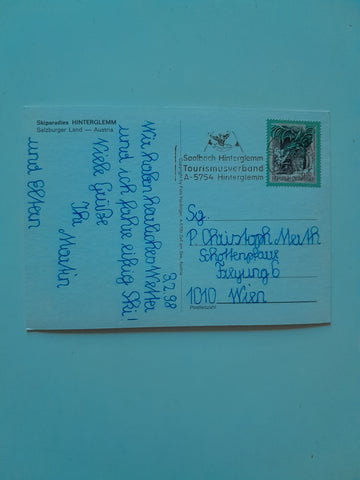 Skiparadies HINTERGLEMM
Salzburger Land — Austria
Saalbach Hinterglemm
Tourismusverband
A-5754 Hinterglemm
9.2.98
Wir haben herrliches Wetter
und ich fahre eifrig Ski!
Viele Grüße
Ihr Martin
und Eltern
Sg.
P. Christoph Merth
Schottenpfarre
Freyung 6
1010 Wien
Postleitzahl